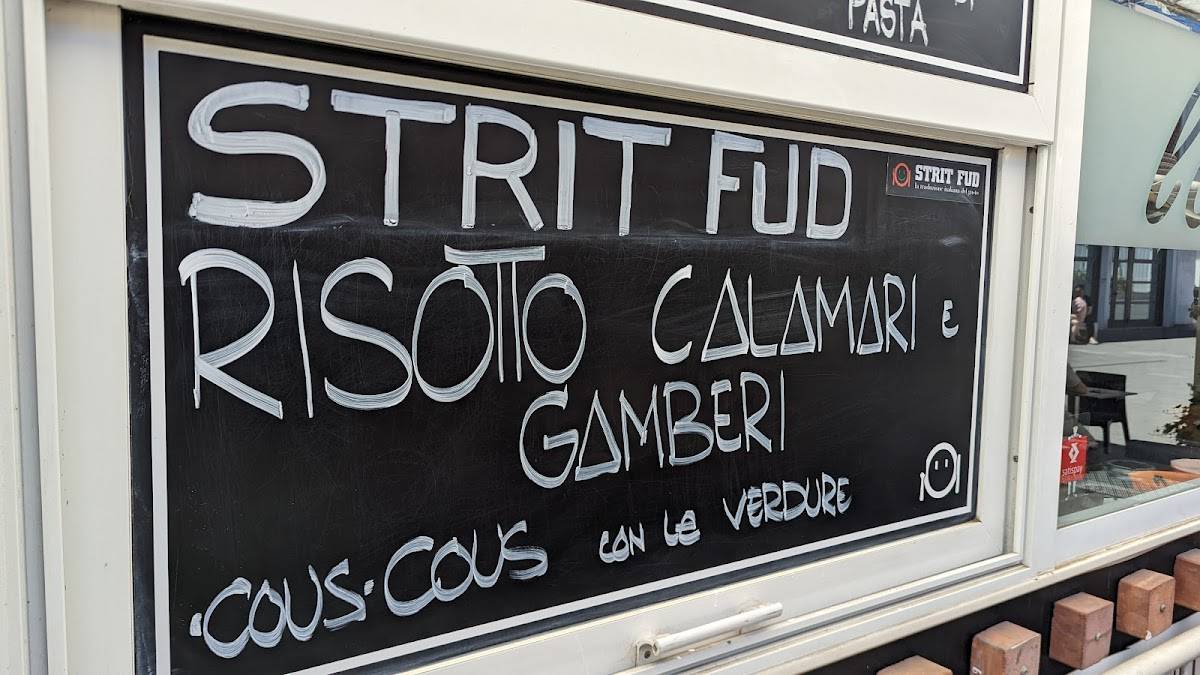 PASTA
STRIT FUD
STRIT FUD
la tradizione italiana del gusto
RISOTTO CALAMARI E
GAMBERI
·COUS·COUS CON LE VERDURE
satispay